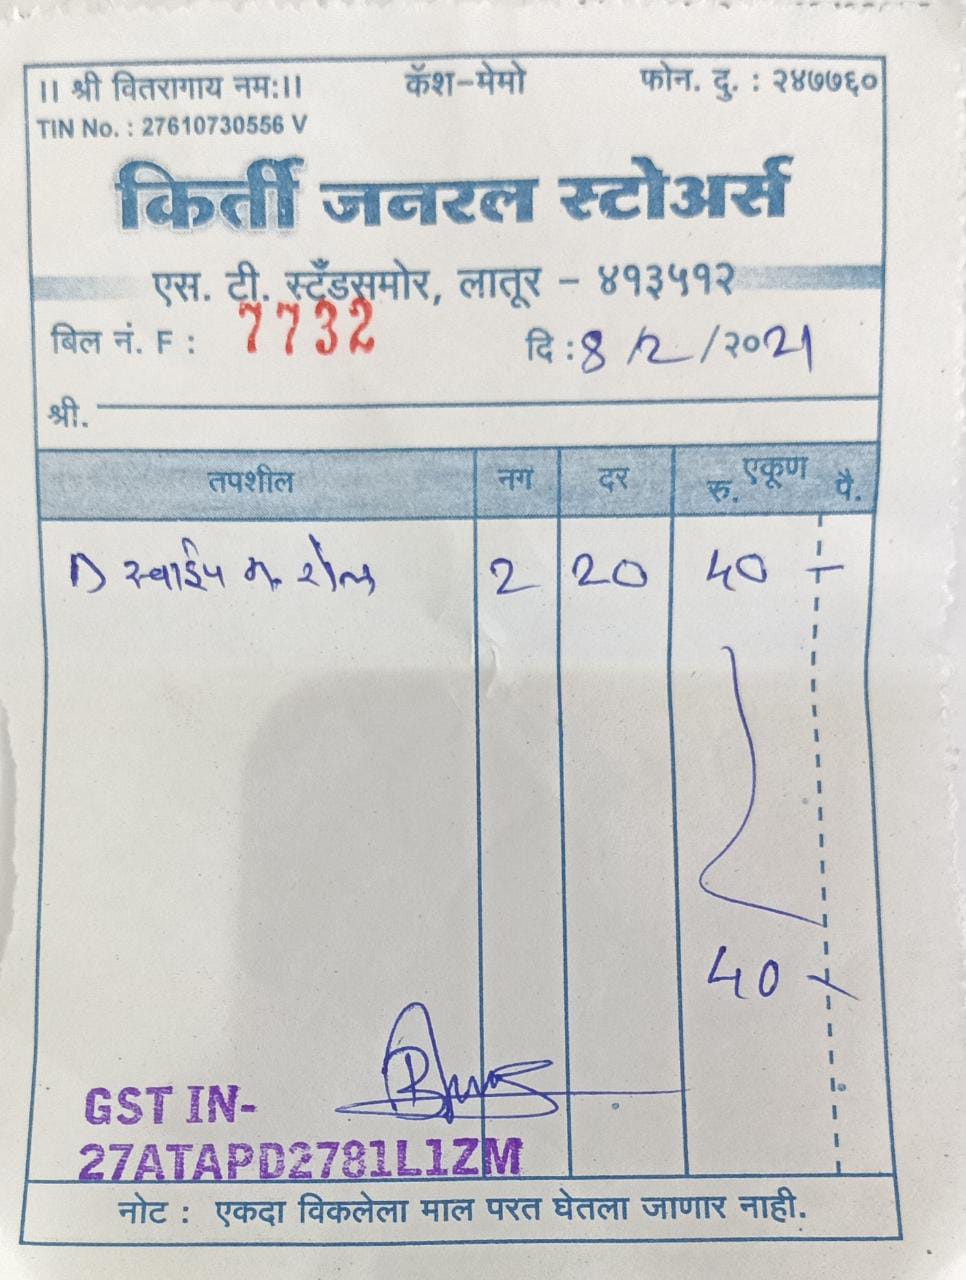 ॥ श्री वितरागाय नम:॥ कॅश-मेमो फोन. दु. : २४७७६०
TIN No. : 27610730556 V
किर्ती जनरल स्टोअर्स
एस. टी. स्टँडसमोर, लातूर - ४१३५१२
बिल नं. F : 7732 दि : 8/2/२०21
श्री.
तपशील नग दर एकूण रु. पै.
1) स्वाईप म. रोल 2 20 40 -
40 -
GST IN-
27ATAPD2781L1ZM
नोट : एकदा विकलेला माल परत घेतला जाणार नाही.